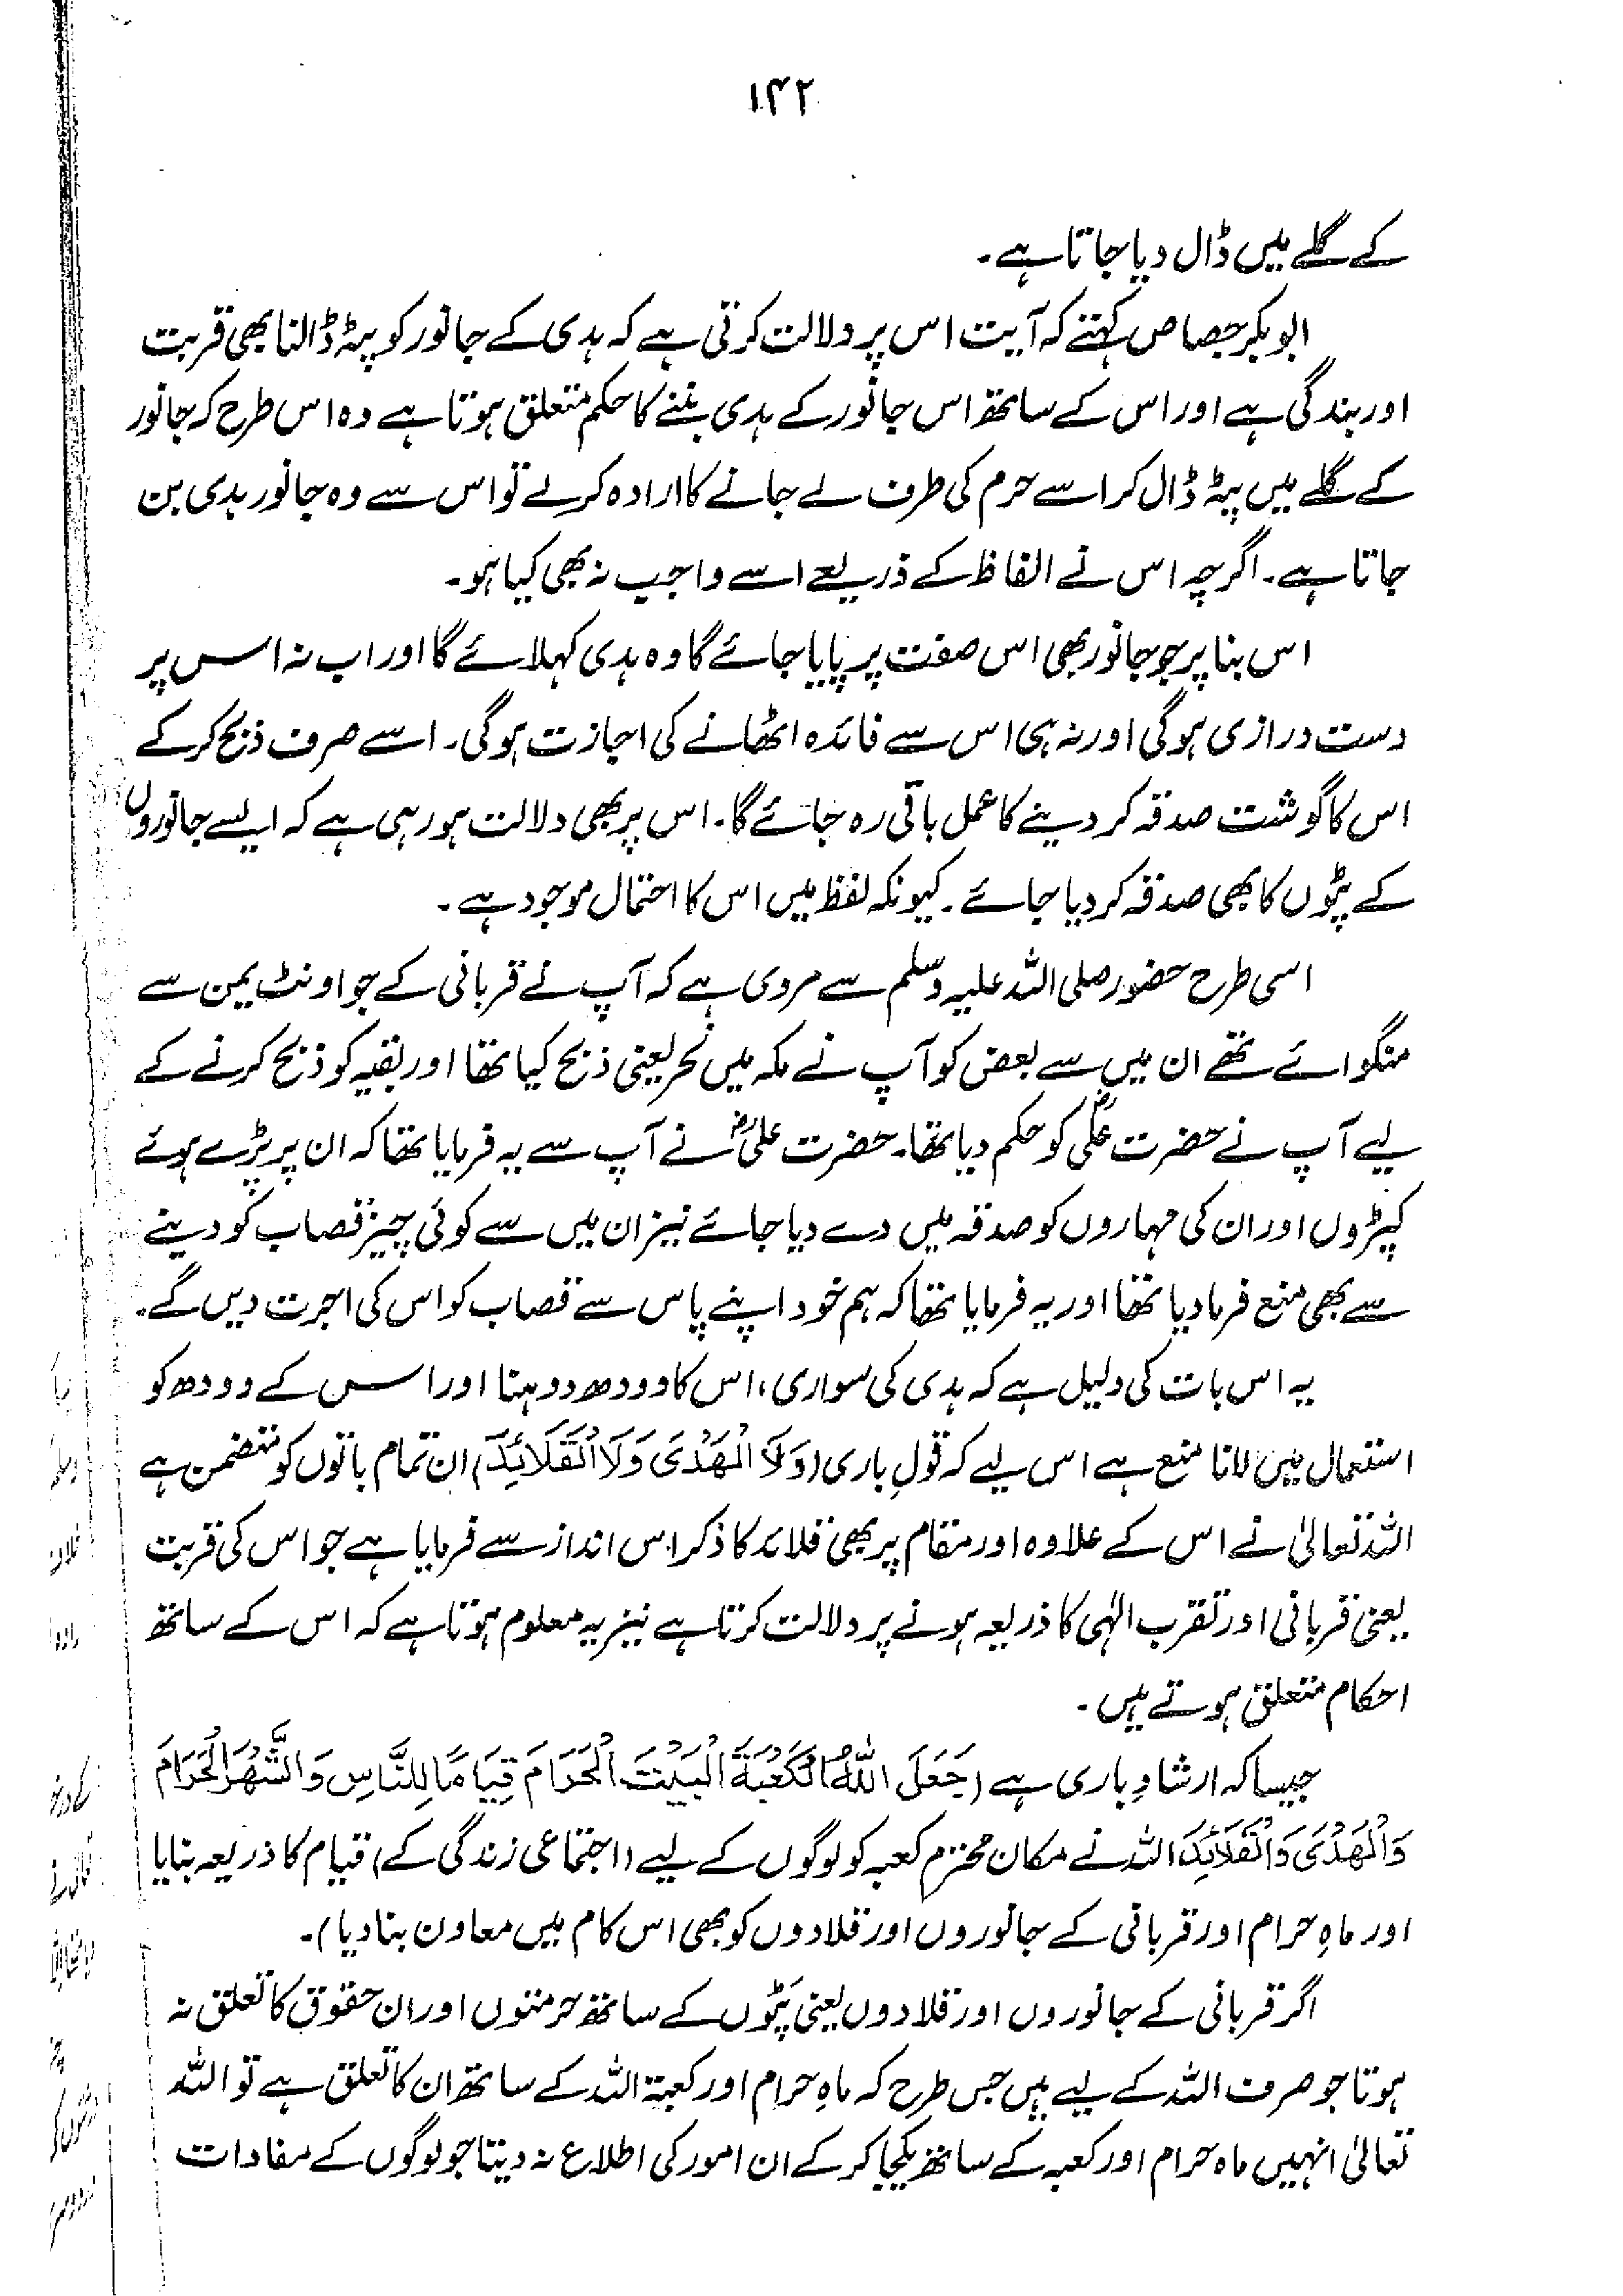 ۱۴۲
کے گلے میں ڈال دیا جاتا ہے۔
ابوبکر جصاص کہتے کہ آیت اس پر دلالت کرتی ہے کہ ہدی کے جانور کو پٹہ ڈالنا بھی قربت
اور بندگی ہے اور اس کے ساتھ اس جانور کے ہدی بننے کا حکم متعلق ہوتا ہے وہ اس طرح کہ جانور
کے گلے میں پٹہ ڈال کر اسے حرم کی طرف لے جانے کا ارادہ کرلے تو اس سے وہ جانور ہدی بن
جاتا ہے۔ اگرچہ اس نے الفاظ کے ذریعے اسے واجب نہ بھی کیا ہو۔
اس بنا پر جو جانور بھی اس صفت پر پایا جائے گا وہ ہدی کہلائے گا اور اب نہ اس پر
دست درازی ہوگی اور نہ ہی اس سے فائدہ اٹھانے کی اجازت ہوگی۔ اسے صرف ذبح کرکے
اس کا گوشت صدقہ کر دینے کا عمل باقی رہ جائے گا۔ اس پر بھی دلالت ہو رہی ہے کہ ایسے جانوروں
کے پٹوں کا بھی صدقہ کر دیا جائے۔ کیونکہ لفظ میں اس کا احتمال موجود ہے۔
اسی طرح حضور صلی اللہ علیہ وسلم سے مروی ہے کہ آپ نے قربانی کے جو اونٹ یمن سے
منگوائے تھے ان میں سے بعض کو آپ نے مکہ میں نحر یعنی ذبح کیا تھا اور بقیہ کو ذبح کرنے کے
لیے آپ نے حضرت علیؓ کو حکم دیا تھا۔ حضرت علیؓ نے آپ سے یہ فرمایا تھا کہ ان پر پڑے ہوئے
کپڑوں اور ان کی مہاروں کو صدقہ میں دے دیا جائے نیز ان میں سے کوئی چیز قصاب کو دینے
سے بھی منع فرما دیا تھا اور یہ فرمایا تھا کہ ہم خود اپنے پاس سے قصاب کو اس کی اجرت دیں گے۔
یہ اس بات کی دلیل ہے کہ ہدی کی سواری، اس کا دودھ دوہنا اور اس کے دودھ کو
استعمال میں لانا منع ہے اس لیے کہ قولِ باری (وَلَا الْهَدْيَ وَلَا الْقَلَائِدَ) ان تمام باتوں کو متضمن ہے
اللہ تعالیٰ نے اس کے علاوہ اور مقام پر بھی قلائد کا ذکر اس انداز سے فرمایا ہے جو اس کی قربت
یعنی قربانی اور تقرب الٰہی کا ذریعہ ہونے پر دلالت کرتا ہے نیز یہ معلوم ہوتا ہے کہ اس کے ساتھ
احکام متعلق ہوتے ہیں۔
جیسا کہ ارشادِ باری ہے (جَعَلَ اللّٰهُ الْكَعْبَةَ الْبَيْتَ الْحَرَامَ قِيَامًا لِّلنَّاسِ وَالشَّهْرَ الْحَرَامَ
وَالْهَدْيَ وَالْقَلَائِدَ اللہ نے مکان محترم کعبہ کو لوگوں کے لیے (اجتماعی زندگی کے) قیام کا ذریعہ بنایا
اور ماہِ حرام اور قربانی کے جانوروں اور قلادوں کو بھی اس کام میں معاون بنا دیا)۔
اگر قربانی کے جانوروں اور قلادوں یعنی پٹوں کے ساتھ حرمتوں اور ان حقوق کا تعلق نہ
ہوتا جو صرف اللہ کے لیے ہیں جس طرح کہ ماہِ حرام اور کعبۃ اللہ کے ساتھ ان کا تعلق ہے تو اللہ
تعالیٰ انہیں ماہ حرام اور کعبہ کے ساتھ یکجا کرکے ان امور کی اطلاع نہ دیتا جو لوگوں کے مفادات